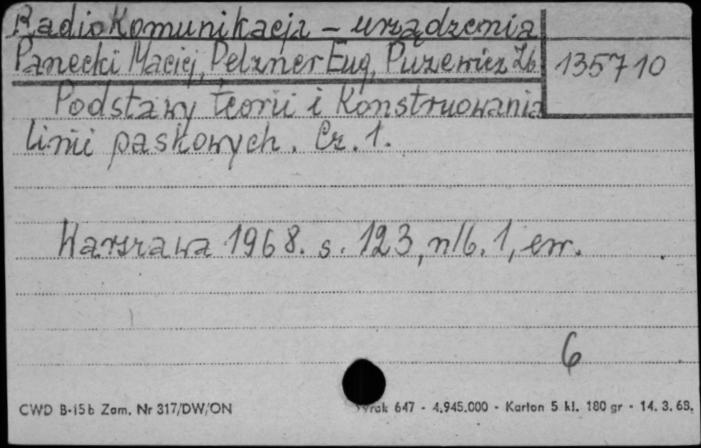 Radiokomunikacja - urządzenia
Panecki Maciej, Pelzner Eug, Puzewicz Zb.
135710
Podstawy teorii i konstruowania
linii paskowych. Cz. 1.
Warszawa 1968. s. 123, nlb. 1, err.
6
CWD B-15b Zam. Nr 317/DW/ON
647 - 4.945.000 - Karton 5 kl. 180 gr - 14. 3. 68.